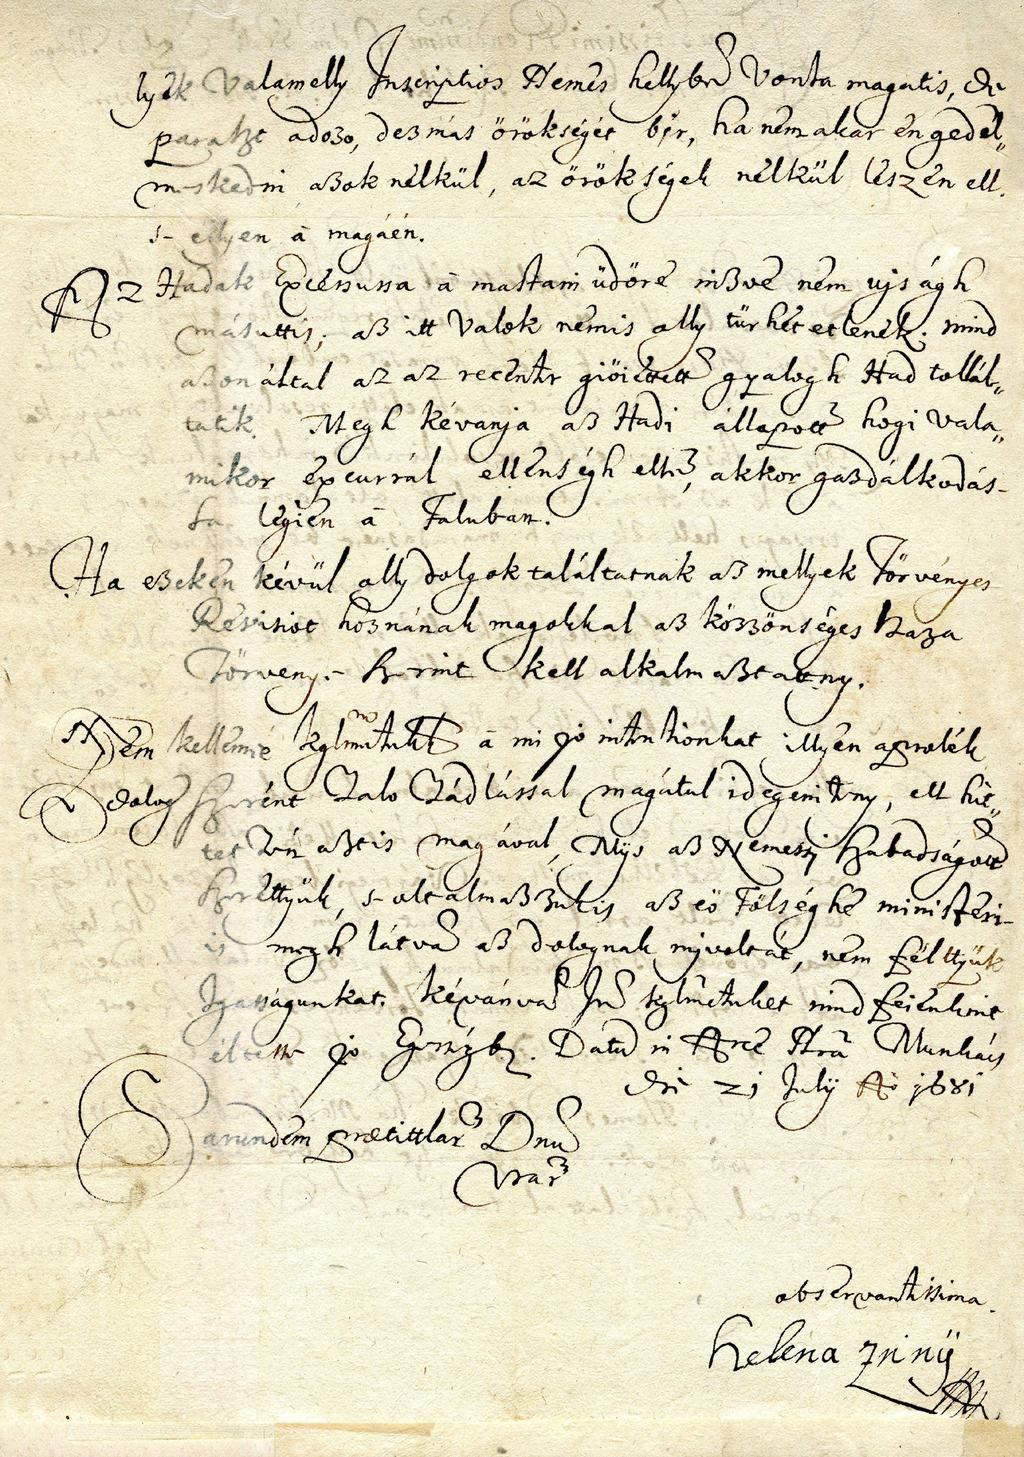 lyek Valamelly Inscriptios Nemes hellybe Vonta magatis, de
paraszt adozo, dezmás örökségét bir, ha nem akar engedel„
meskedni azok nélkül, az örökségek nélkül leszen ell.
s- ellyen á magáén.
Az Hadak Excessussa á mastani üdöre nizve nem ujságh
másuttis; az itt Valok nemis olly türhetetlenek; mind
azon által az az recenter giöiettett gyalogh Had tollál„
tatik. Megh kévanja az Hadi állapott hogi vala„
mikor excurrál ellenségh elln, akkor gazdálkodás-
sa légien á Faluban.
Ha ezeken kévül olly dolgok találtatnak az mellyek Törvényes
Revisiot hoznának magokkal az közzönséges haza
Törveny.- szerint kell alkalmaztatny.
Nem kellemé kglmetek á mi jo intentionkat illyen aprolék
dolog szerént magátul idegeniteny, ell hit„
tet vén aztis magával, Mys az Nemessi szabadságott
szerettyük, s- oltalmazzukis az eö Fölséghe ministeri-
is megh látván az dolognak nyvoltát, nem féllttyük
Igasságunkat. kévánván In kglmeteket mind feienkint
éltesse jo Egezségben. Datum in Arce Nra Munkács
die 21 July Ao 1681
Earundem praetittlar Dnum
Vrar
observantissima.
Helena Zriny